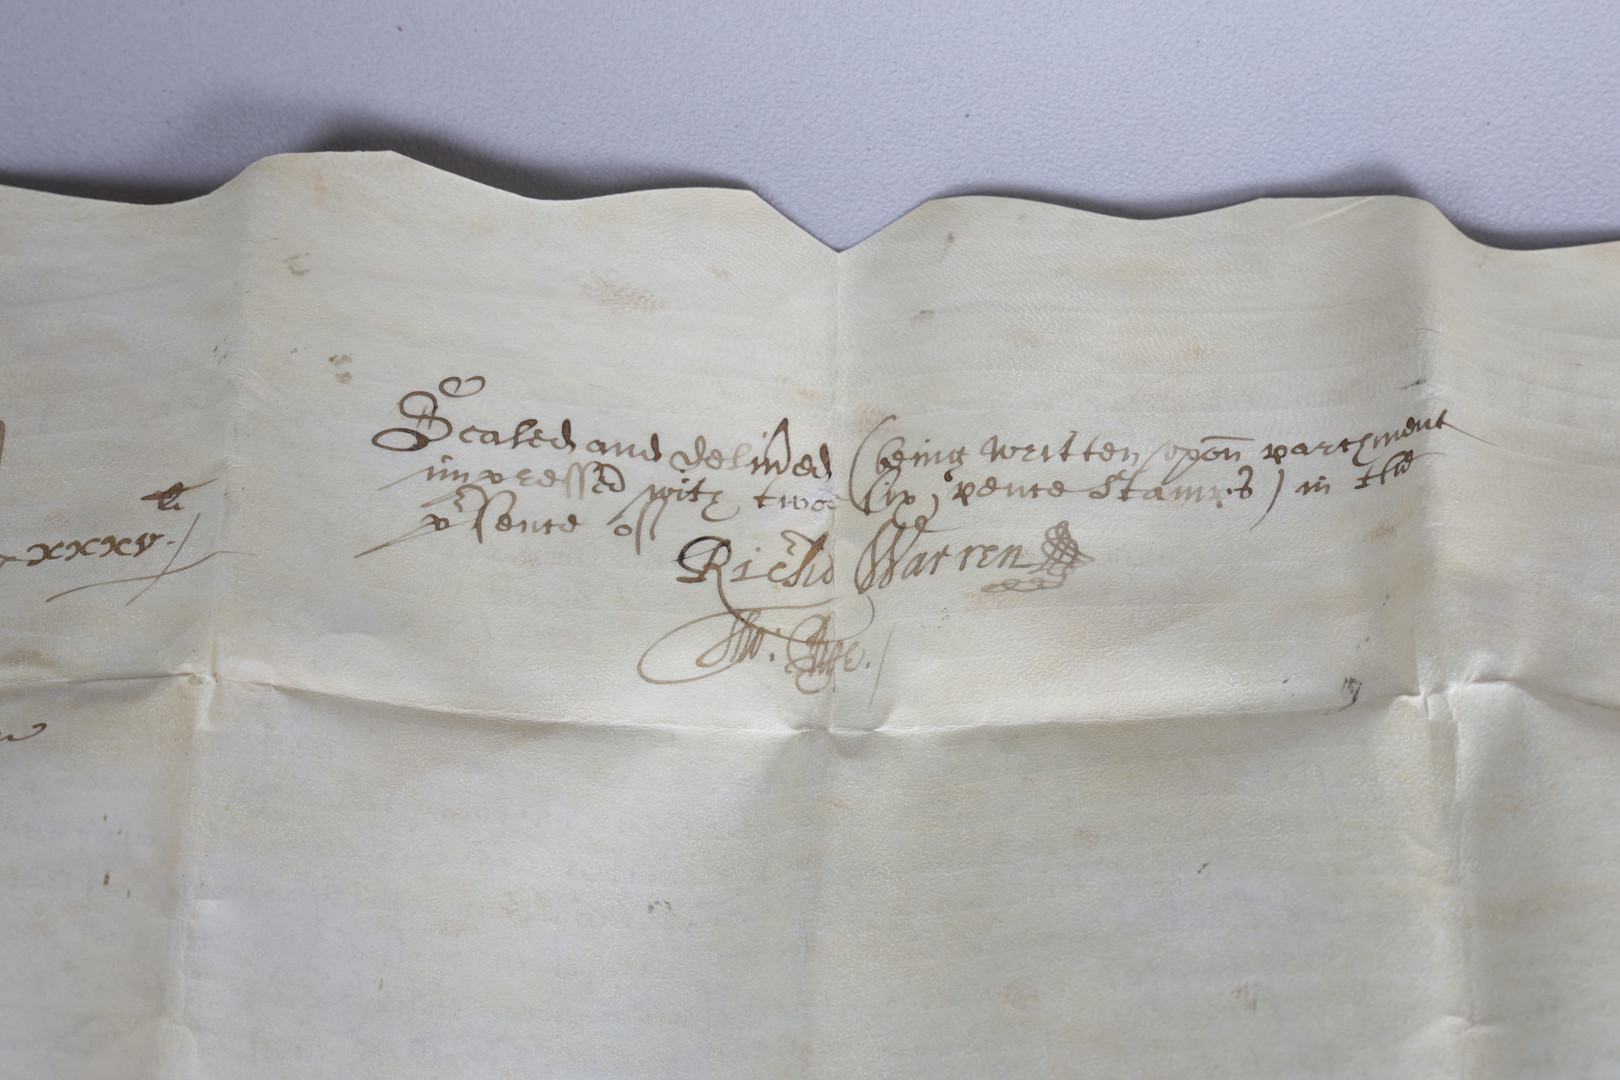 Sealed and delivred (being written upon parchment
impressed with two six pence stamps) in the
prsence of
Richd Warren
Tho:
li
xxxv.